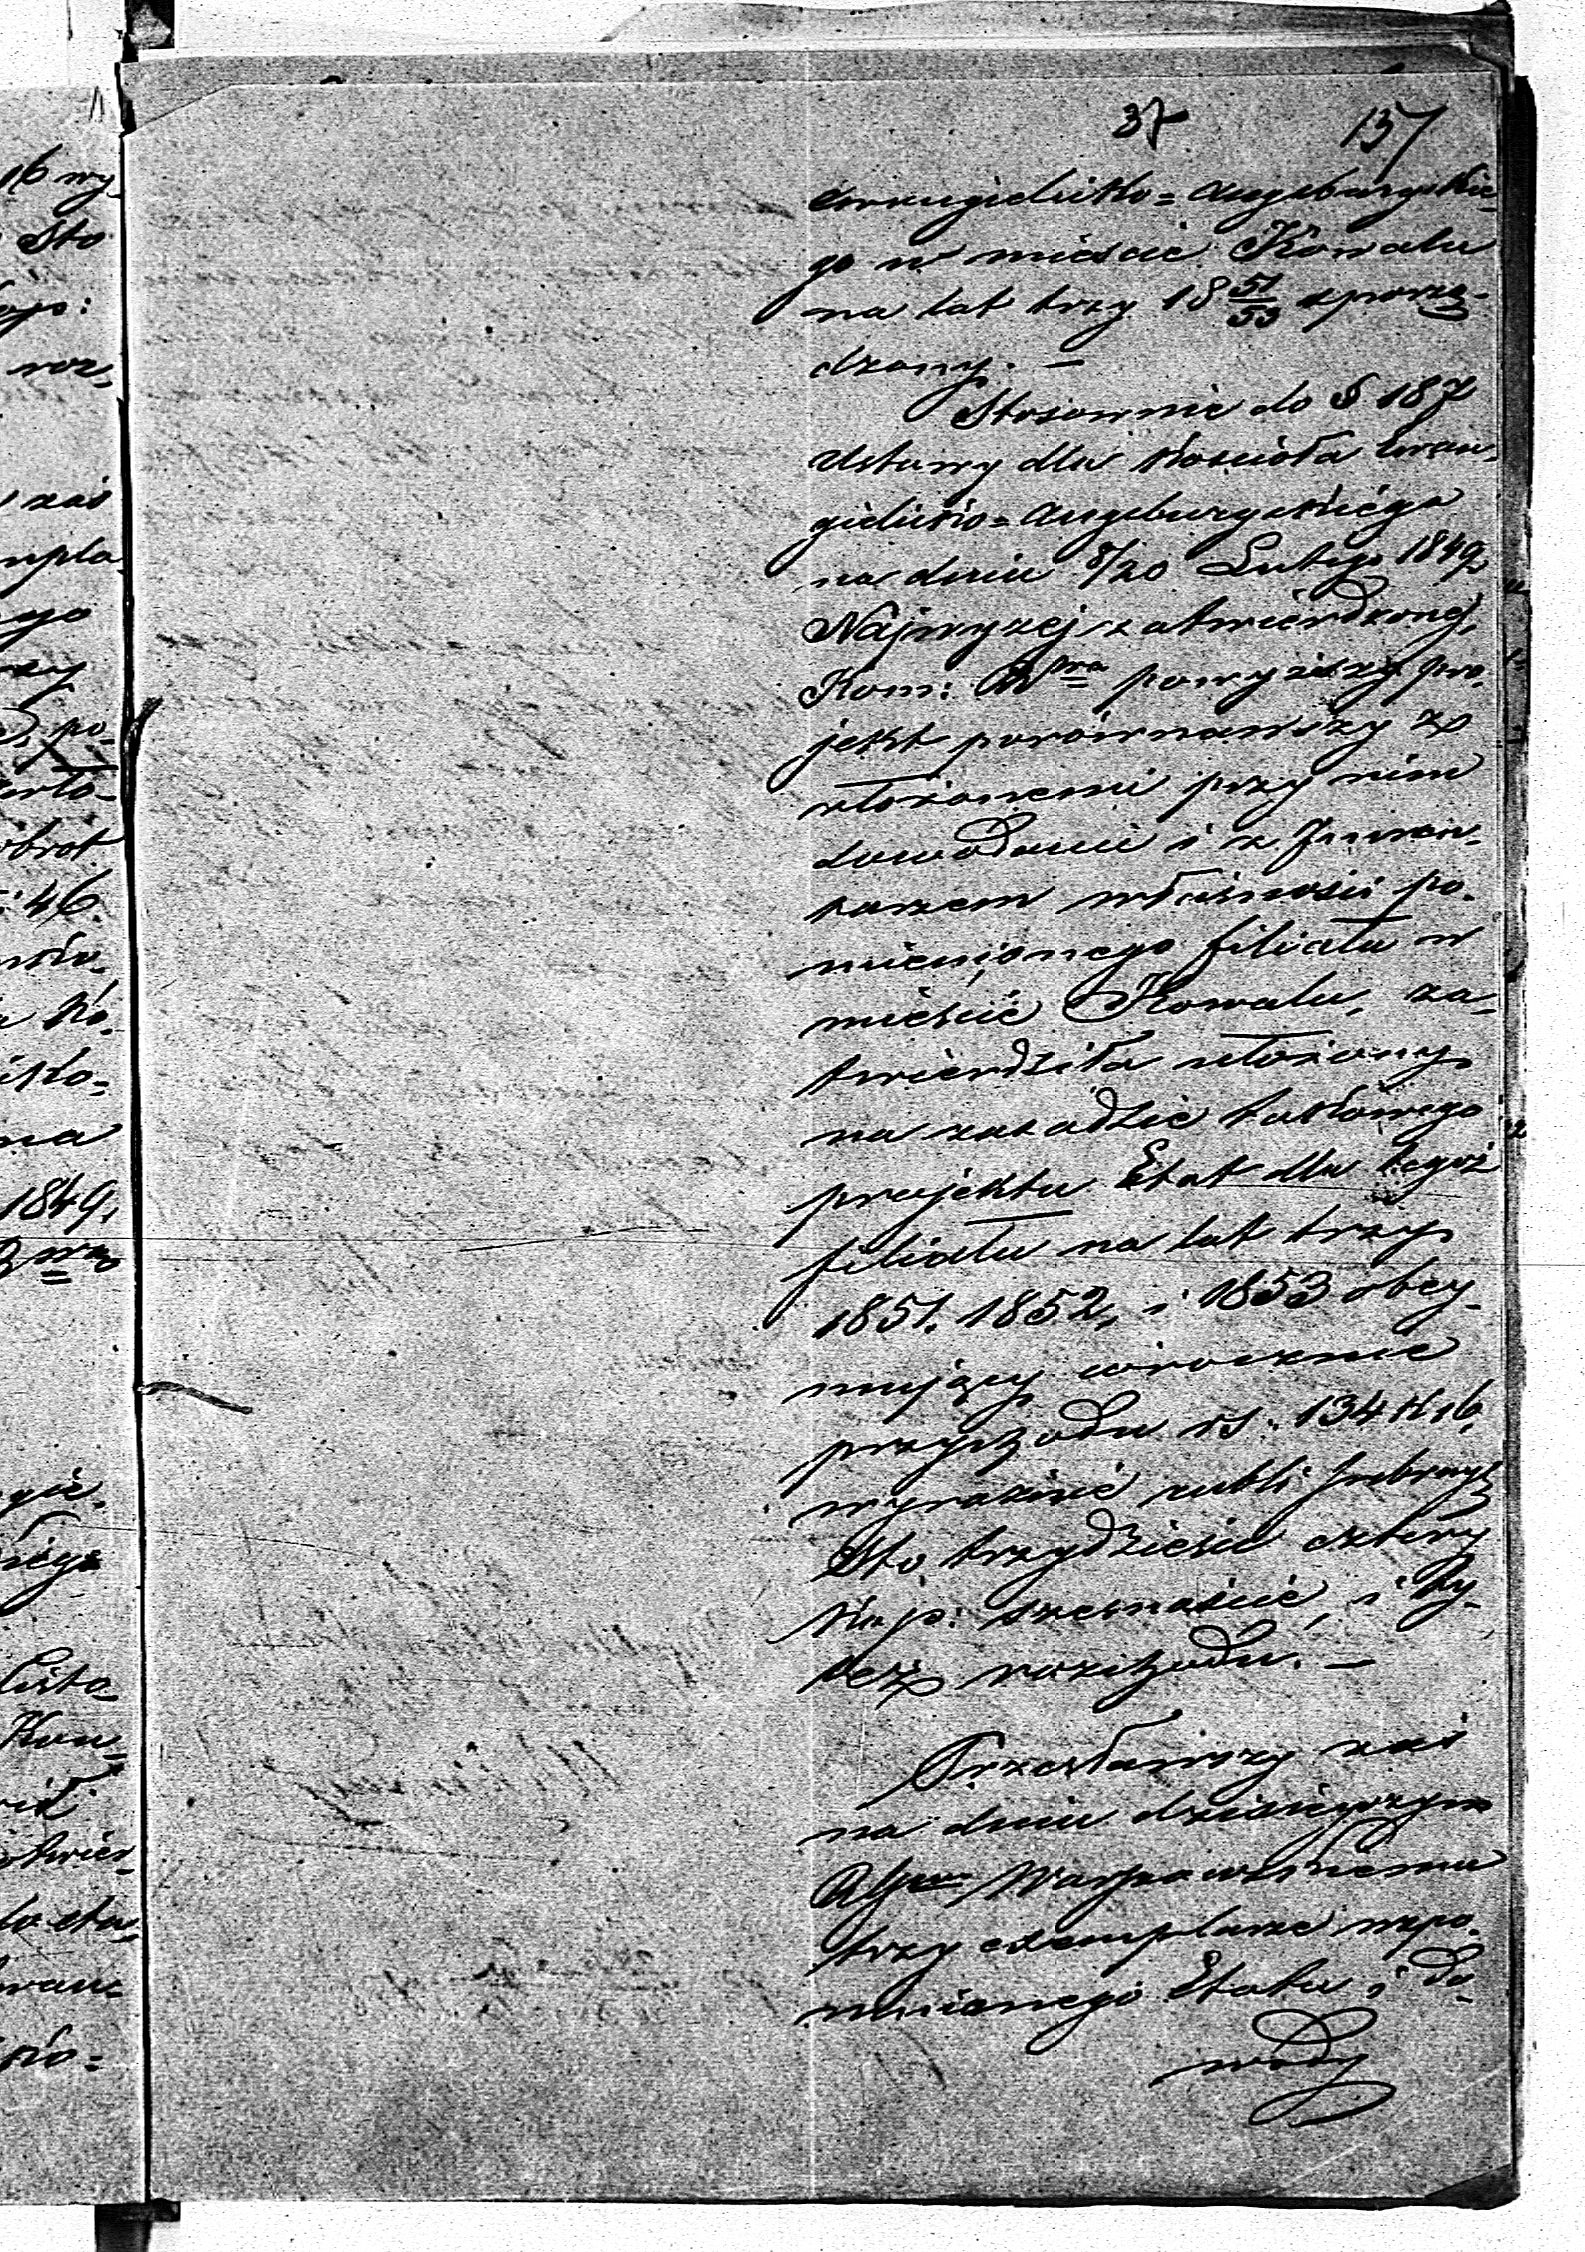 37 157
Ewangielicko=Augsburgskie-
go w mieście Kowalu
na lat trzy 18 51/53 sporzą-
dzony. —
Stosownie do § 187
Ustawy dla Kościoła Ewan-
gielicko=Augsburgskiego
na dniu 8/20 Lutego 1849
Najwyżej zatwierdzonej,
Kom: powyższy pro-
jekt porównawszy z
złożonemi przy nim
dowodami i z Inwen-
tarzem własności po-
mienionego filiału w
mieście Kowalu, za-
twierdziła ułożony
na zasadzie takowego
projektu Etat dla tegoż
filiału na lat trzy
1851. 1852, i 1853 obey-
mujący corocznie
przychodu rs: 134 k 16,
wyraźnie rubli srebrnych
Sto trzydzieści cztery
kop: szesnaście, i ty-
leż rozchodu. —
Przesławszy zaś
na dniu dzisieyszym
Warszawskiemu
trzy exemplarze wspo-
mnionego Etatu i do-
wody
16 wy-
Sto
roz-
zaś
mpla-
ego
po-
obrot
: 46.
Ko-
na
1849,
gie-
Listo-
Kon-
twier-
wan-